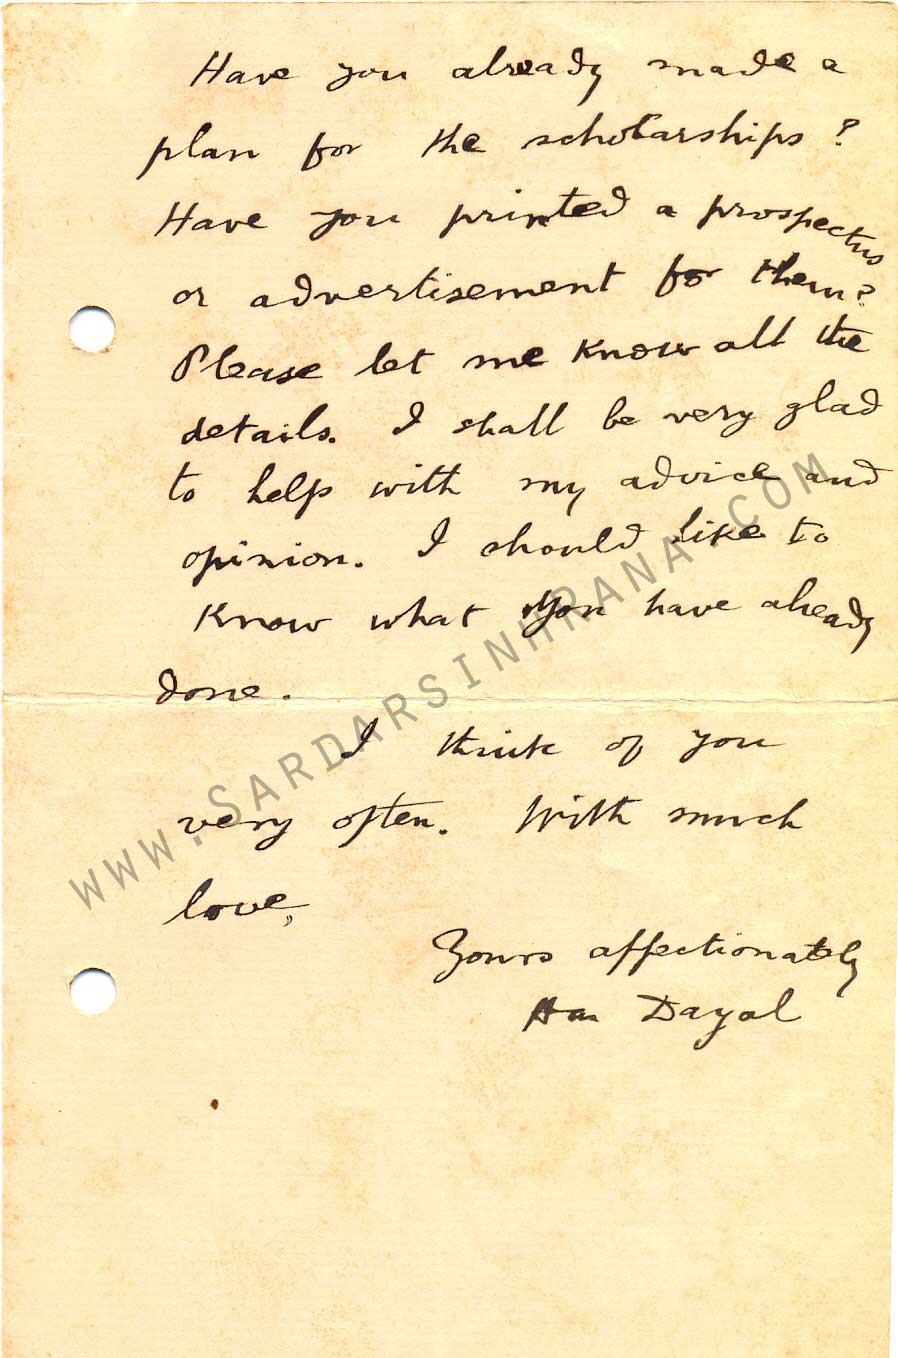 Have you already made a
plan for the scholarships?
Have you printed a prospectus
or advertisement for them?
Please let me know all the
details. I shall be very glad
to help with my advice and
opinion. I should like to
know what you have already
done.
I think of you
very often. With much
love,
Yours affectionately
Har Dayal
www.SARDARSINHRANA.COM